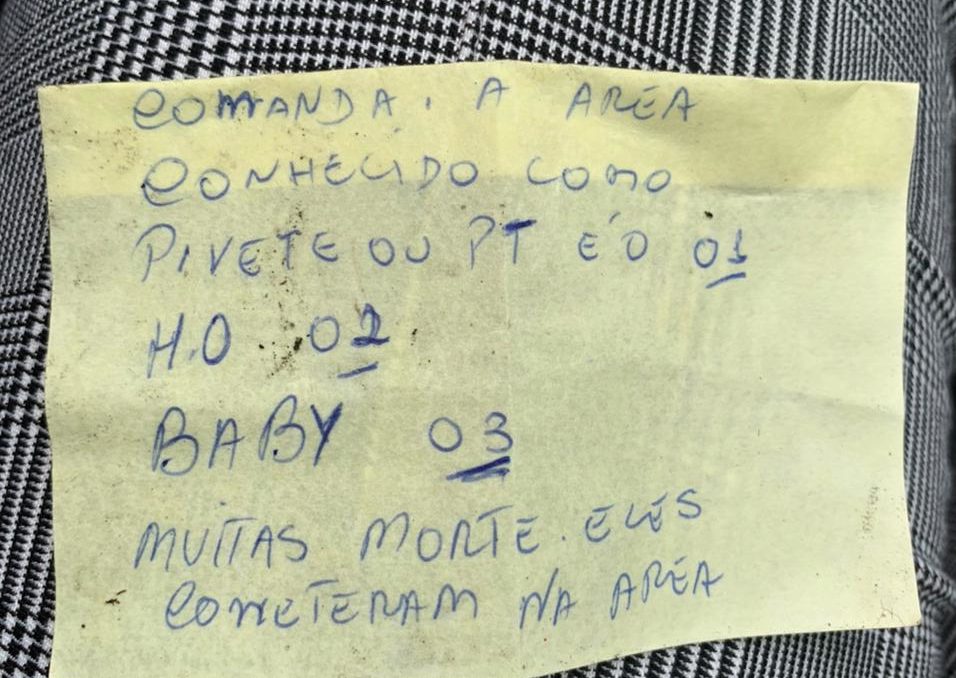 COMANDA. A AREA
CONHECIDO COMO
PIVETE OU PT É O 01
H.O 02
BABY 03
MUITAS MORTE. ELES
COMETERAM NA AREA